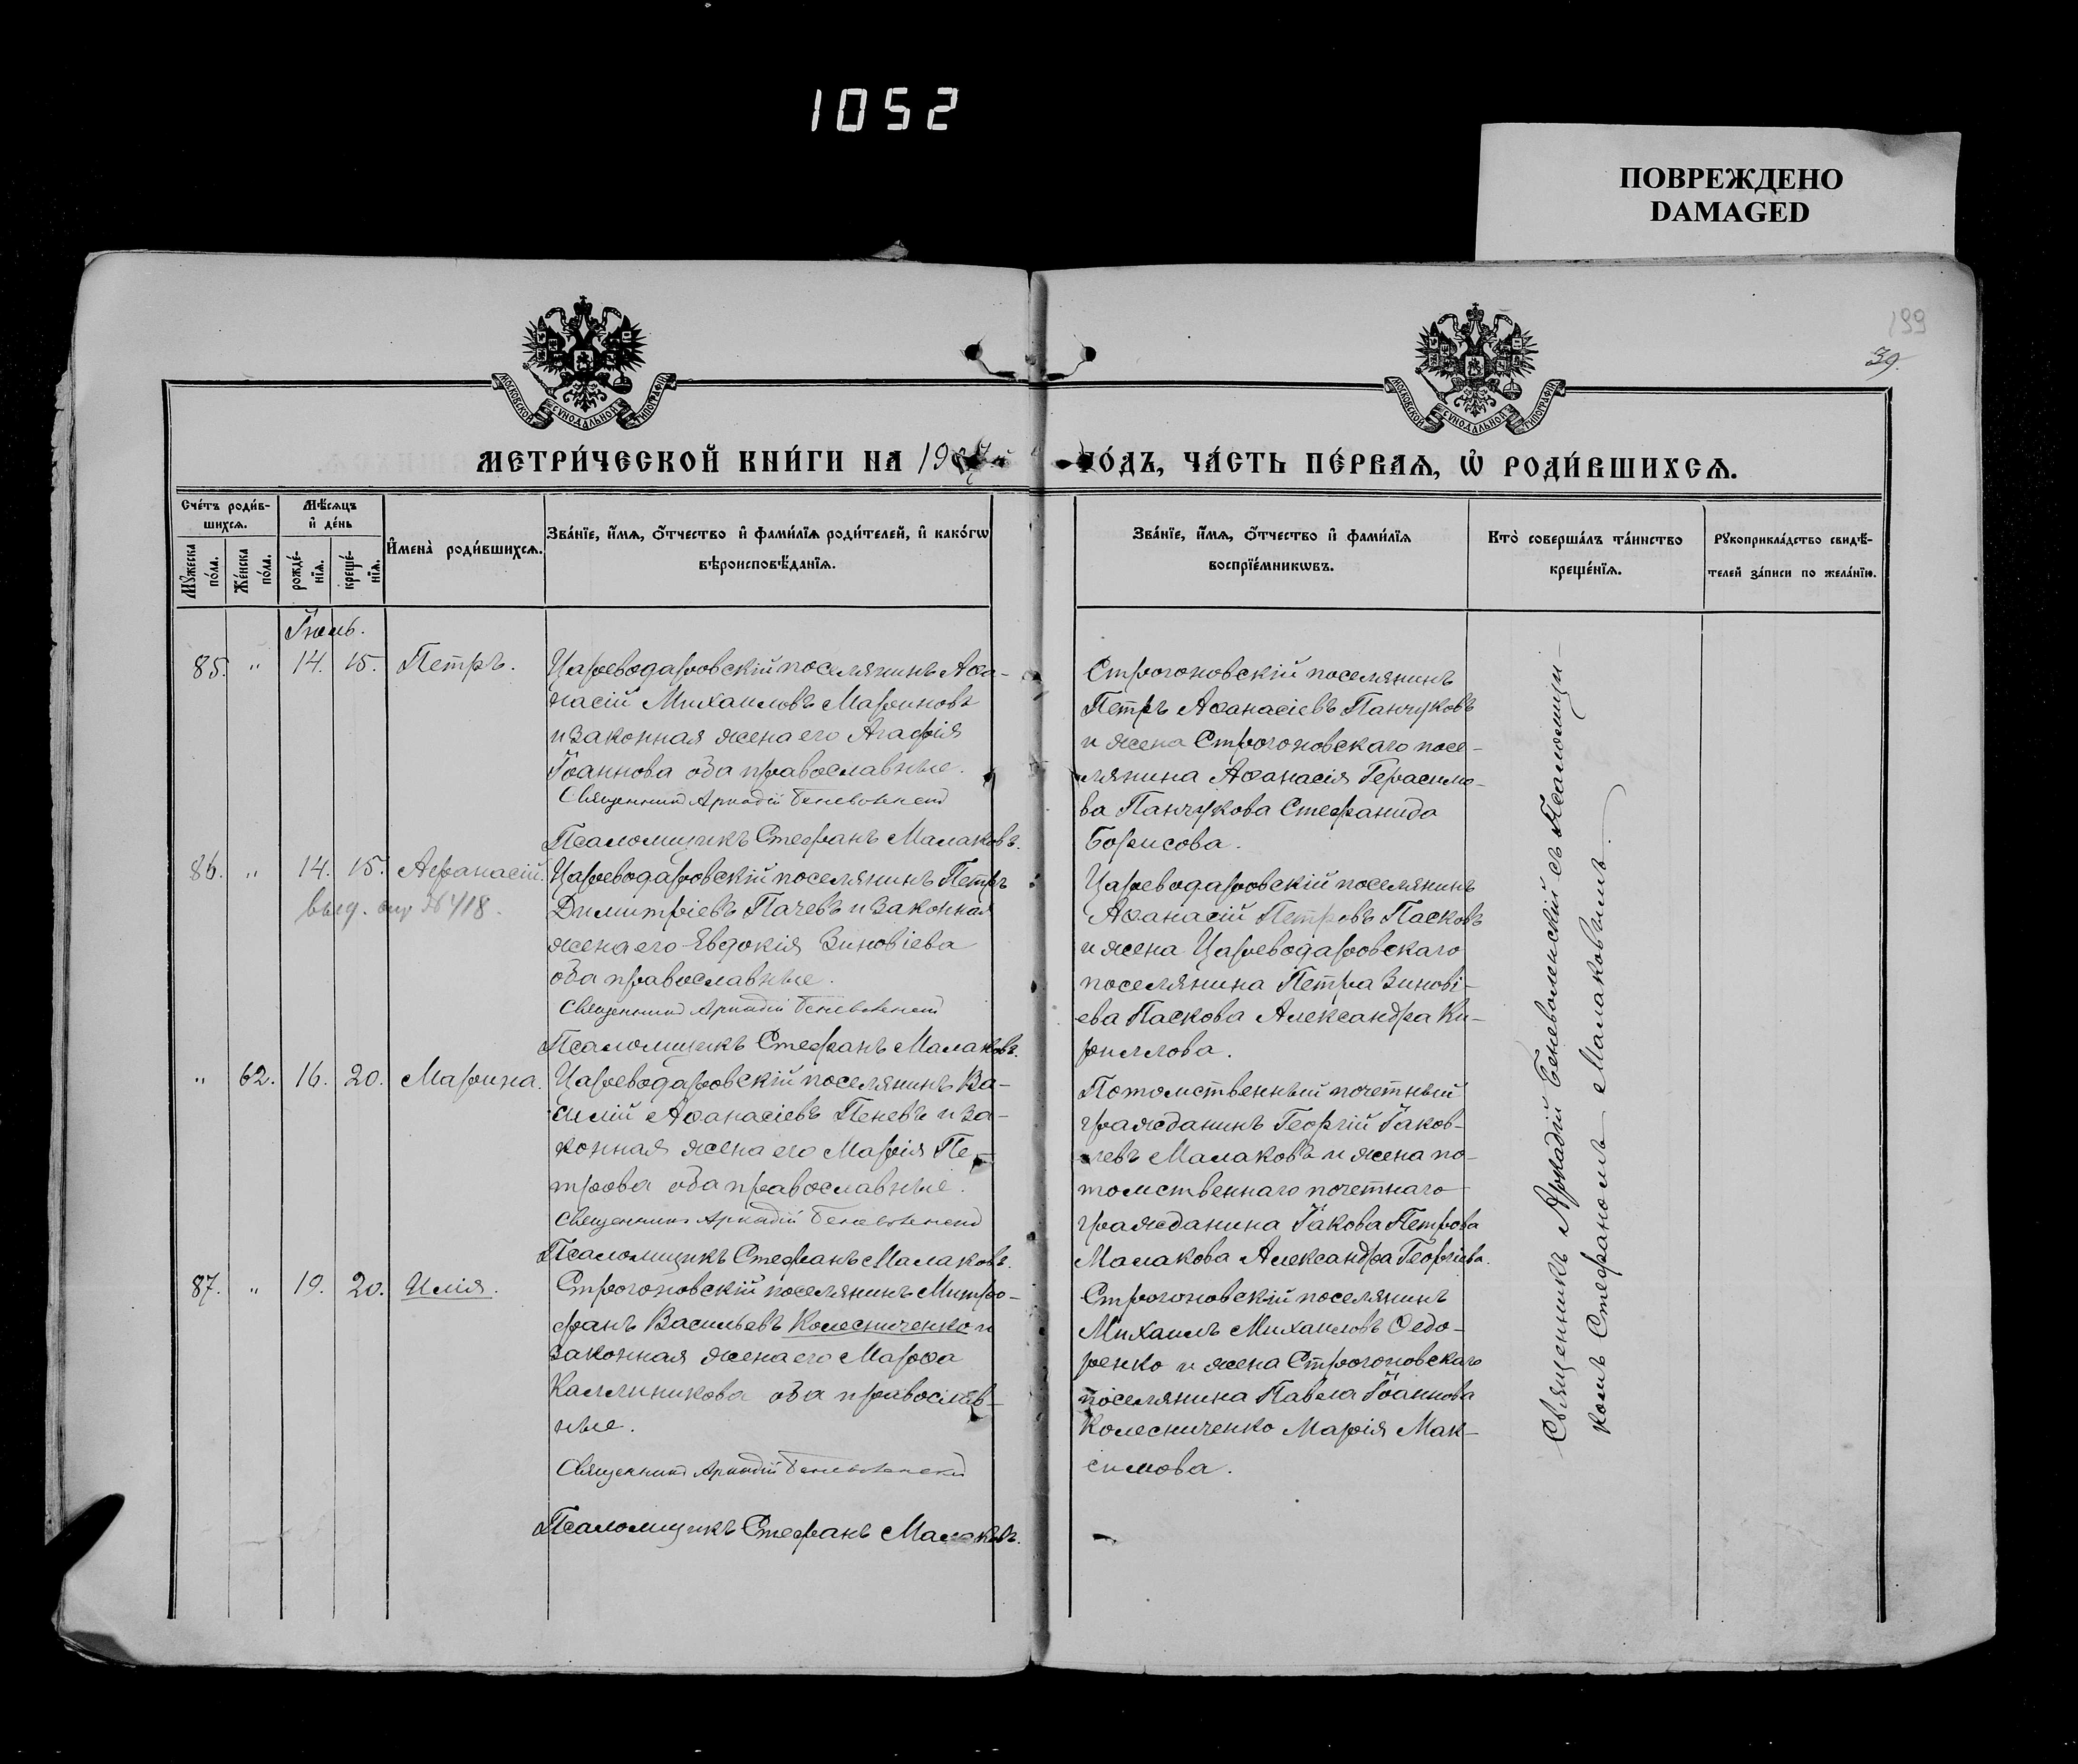 1052
ПОВРЕЖДЕНО
DAMAGED
199
39.
МОСКОВСКОЙ СѴНОДАЛЬНОЙ ТИПОГРАФІИ
МОСКОВСКОЙ СѴНОДАЛЬНОЙ ТИПОГРАФІИ
МЕТРИ́ЧЕСКОЙ КНИ́ГИ НА 19
ГО́ДЪ, ЧА́СТЬ ПЕ́РВАѦ, Ѡ҆ РОДИ́ВШИХСѦ.
Сче́тъ роди́в-
шихсѧ.
Мѣ́сѧцъ
и҆ де́нь
Мꙋ́жеска по́ла.
Же́нска по́ла.
рожде́-
нїѧ.
креще́-
нїѧ.
И҆мена̀ роди́вшихсѧ.
Зва́нїе, и҆́мѧ, о҆́тчество и҆ фами́лїѧ роди́телей, и҆ како́гѡ
вѣроисповѣ́данїѧ.
Зва́нїе, и҆́мѧ, о҆́тчество и҆ фами́лїѧ
воспрїе́мникѡвъ.
Кто̀ соверша́лъ та́инство
креще́нїѧ.
Рꙋкоприкла́дство свидѣ́-
телей за́писи по жела́нїю.
Іюль.
85. " 14. 15. Петръ.
Цареводаровскій поселянинъ Аѳа-
насій Михаиловъ Мариновъ
и законная жена его Агафія
Іоаннова оба православные.
Священникъ Аркадій Беневоленскій
Псаломщикъ Стефанъ Малаковъ.
Строгоновскій поселянинъ
Петръ Аѳанасіевъ Панчуковъ
и жена Строгоновскаго посе-
лянина Аѳанасія Герасимо-
ва Панчукова Стефанида
Борисова.
86. " 14. 15. Афанасій.
выд. № 418.
Цареводаровскій поселянинъ Петръ
Димитріевъ Пачевъ и законная
жена его Евдокія Зиновіева
оба православные.
Священникъ Аркадій Беневоленскій
Псаломщикъ Стефанъ Малаковъ.
Цареводаровскій поселянинъ
Аѳанасій Петровъ Пасковъ
и жена Цареводаровскаго
поселянина Петра Зинові-
ева Паскова Александра Ки-
риллова.
" 62. 16. 20. Марина.
Цареводаровскій поселянинъ Ва-
силій Аѳанасіевъ Пеневъ и за-
конная жена его Марія Пе-
трова оба православные.
Священникъ Аркадій Беневоленскій
Псаломщикъ Стефанъ Малаковъ.
Потомственный почетный
гражданинъ Георгій Іаков-
левъ Малаковъ и жена по-
томственнаго почетнаго
гражданина Іакова Петрова
Малакова Александра Георгіева.
87. " 19. 20. Илія.
Строгоновскій поселянинъ Митро-
фанъ Васильевъ Колесниченко и
законная жена его Марѳа
Каллиникова оба православ-
ные.
Священникъ Аркадій Беневоленскій
Псаломщикъ Стефанъ Малаковъ.
Строгоновскій поселянинъ
Михаилъ Михаиловъ Ѳедо-
ренко и жена Строгоновскаго
поселянина Павла Іоаннова
Колесниченко Марія Мак-
симова.
Священникъ Аркадій Беневоленскій съ Псаломщи-
комъ Стефаномъ Малаковымъ.